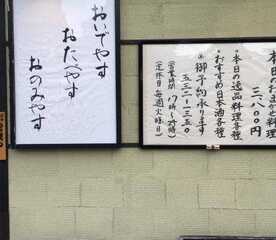 おいでやす
おたべやす
おのみやす
本日のおまかせ料理
三、八〇〇円
・本日の逸品料理各種
・おすすめ日本酒各種
御予約承ります
五三二-一三五〇
(営業時間 17時〜21時)
(定休日 毎週火曜日)